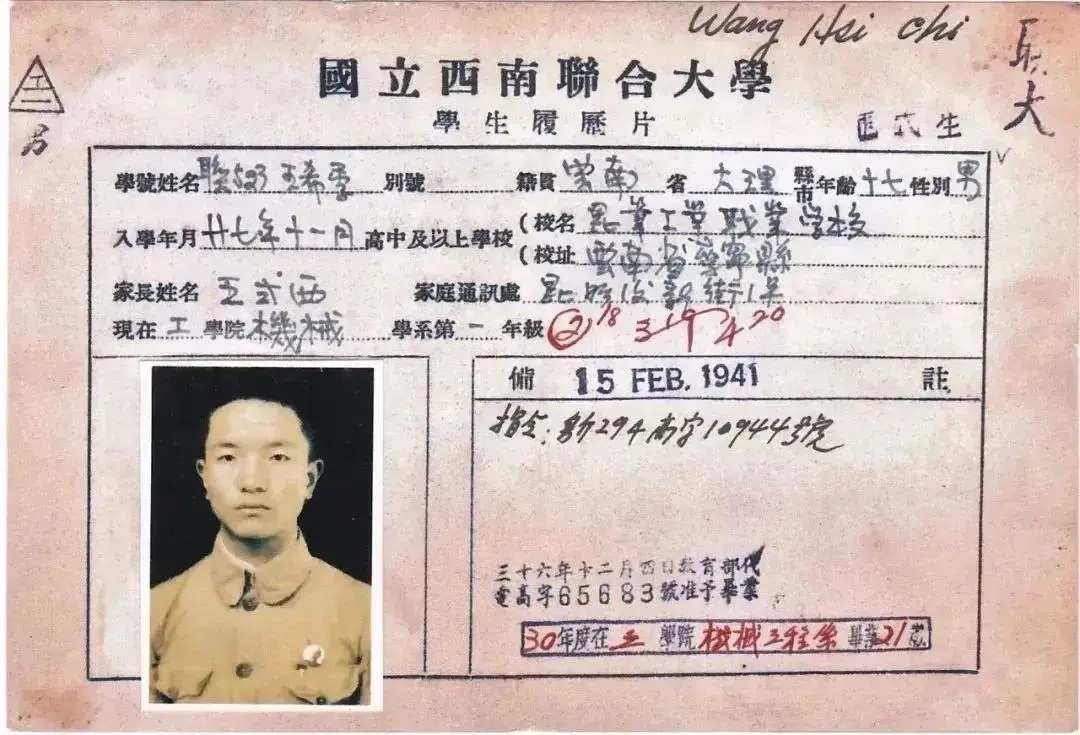 Wang Hsi Chi
國立西南聯合大學
學生履歷片
工
正式生
學號姓名 聯523 王希季 別號 籍貫 雲南 省 大理 縣市 年齡 十七 性別 男
入學年月 廿七年十一月 高中及以上學校 (校名 昆華工業職業学校
(校址 雲南省 縣
家長姓名 王式西 家庭通訊處 昆明 新街
現在 工 學院 機械 學系第 一 年級 ② 18 3 19 4 20
備 15 FEB. 1941 註
指令: 294 高字10944號
三十六年十二月四日教育部代
電高字65683號准予畢業
30年度在 工 學院 機械工程系 畢業21